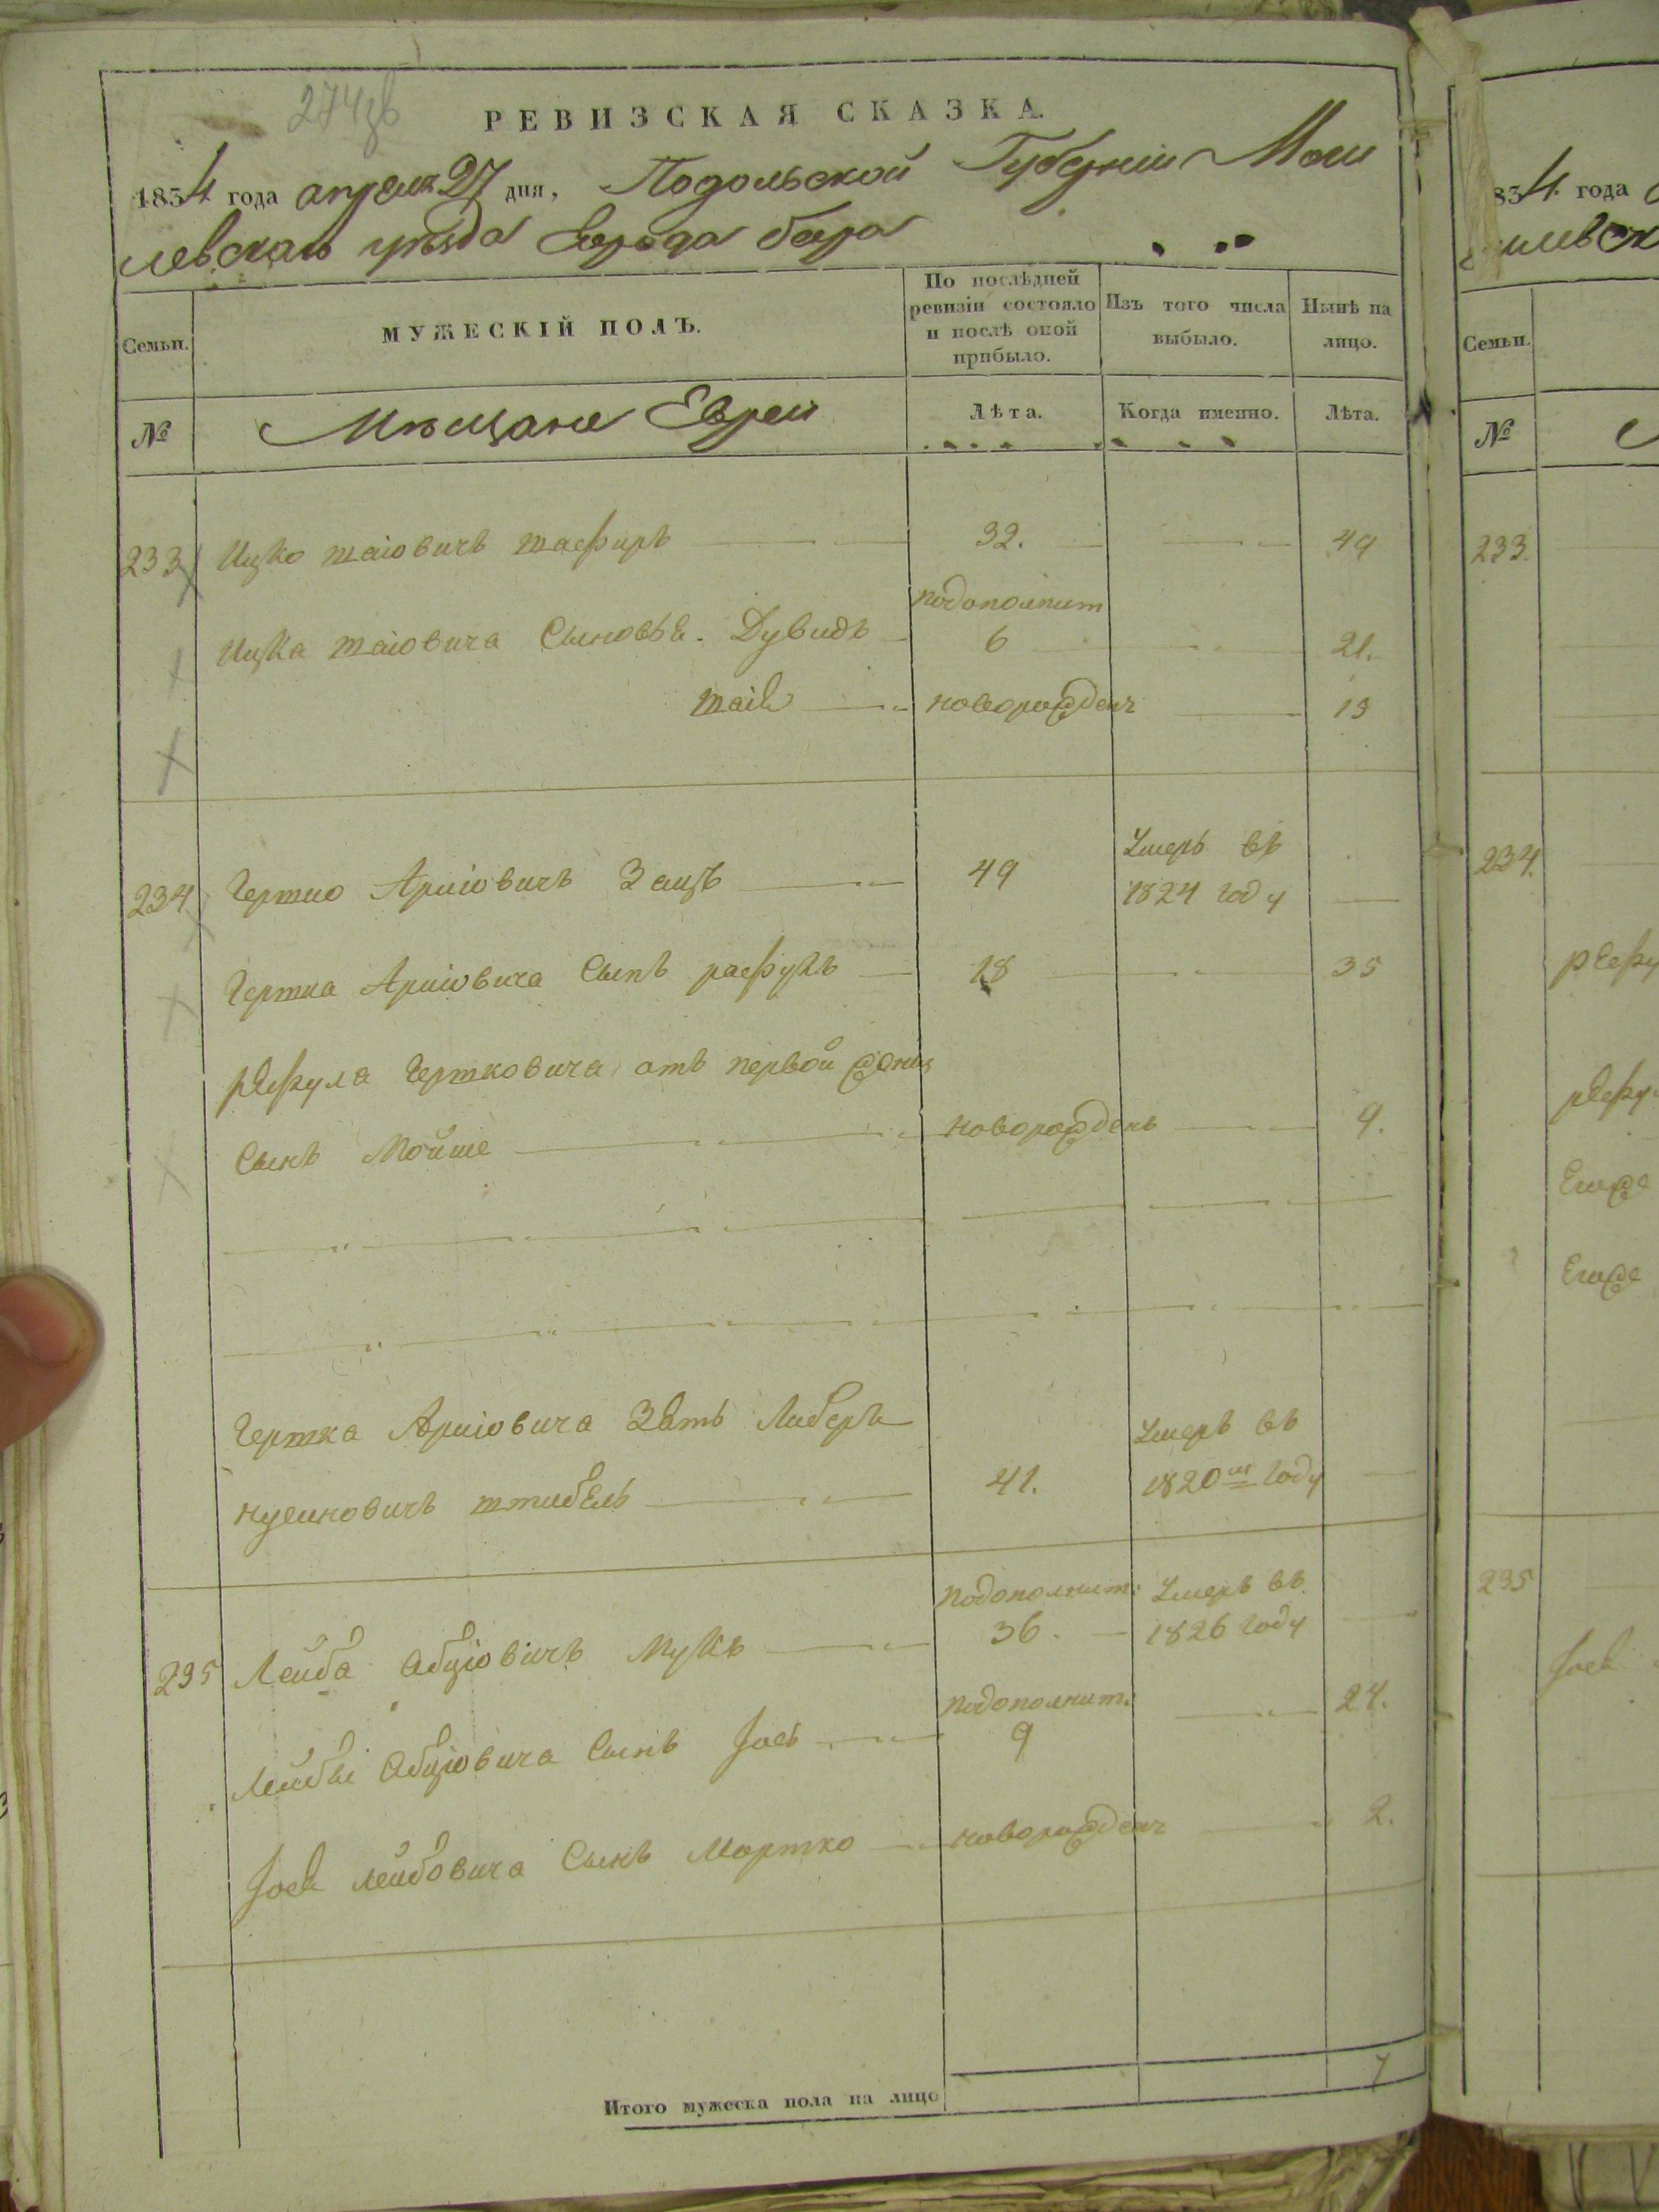 РЕВИЗСКАЯ СКАЗКА.
1834 года апреля 27 дня, Подольской Губернии Моги
левскаго уезда Города бара
Семьи.
МУЖЕСКІЙ ПОЛЪ.
По послѣдней ревизіи состояло и послѣ оной прибыло.
Изъ того числа выбыло.
Нынѣ на лицо.
№
Мѣщане Евреи
Лѣта.
Когда именно.
Лѣта.
233 Ицко шаіовичъ шафиръ 32. 49
Ицка шаіовича Сыновья. Дувидъ подополнит 6 21.
шаія новорожден 13
234 Гершко Аріиовичъ Заицъ 49 Умеръ въ 1824 году
Гершка Аріиовича Сынъ рафулъ 18 35
рафула Гершковича отъ первой жены
Сынъ Мойше новорожденъ 9.
Гершка Аріиовича Зять Либеръ
нусиновичъ штибель 41. Умеръ въ 1820м году
235 Лейба Абціовичъ Мукъ подополнит: 36. Умеръ въ 1826 году
Лейбы Абціовича Сынъ Іось подополнит: 9 24.
Іося лейбовича Сынъ Мортко новорожден 2.
Итого мужеска пола на лицо 7
834 года
Семьи.
№
233.
234.
рафу
рафу
Егоже
Егоже
235
Іося